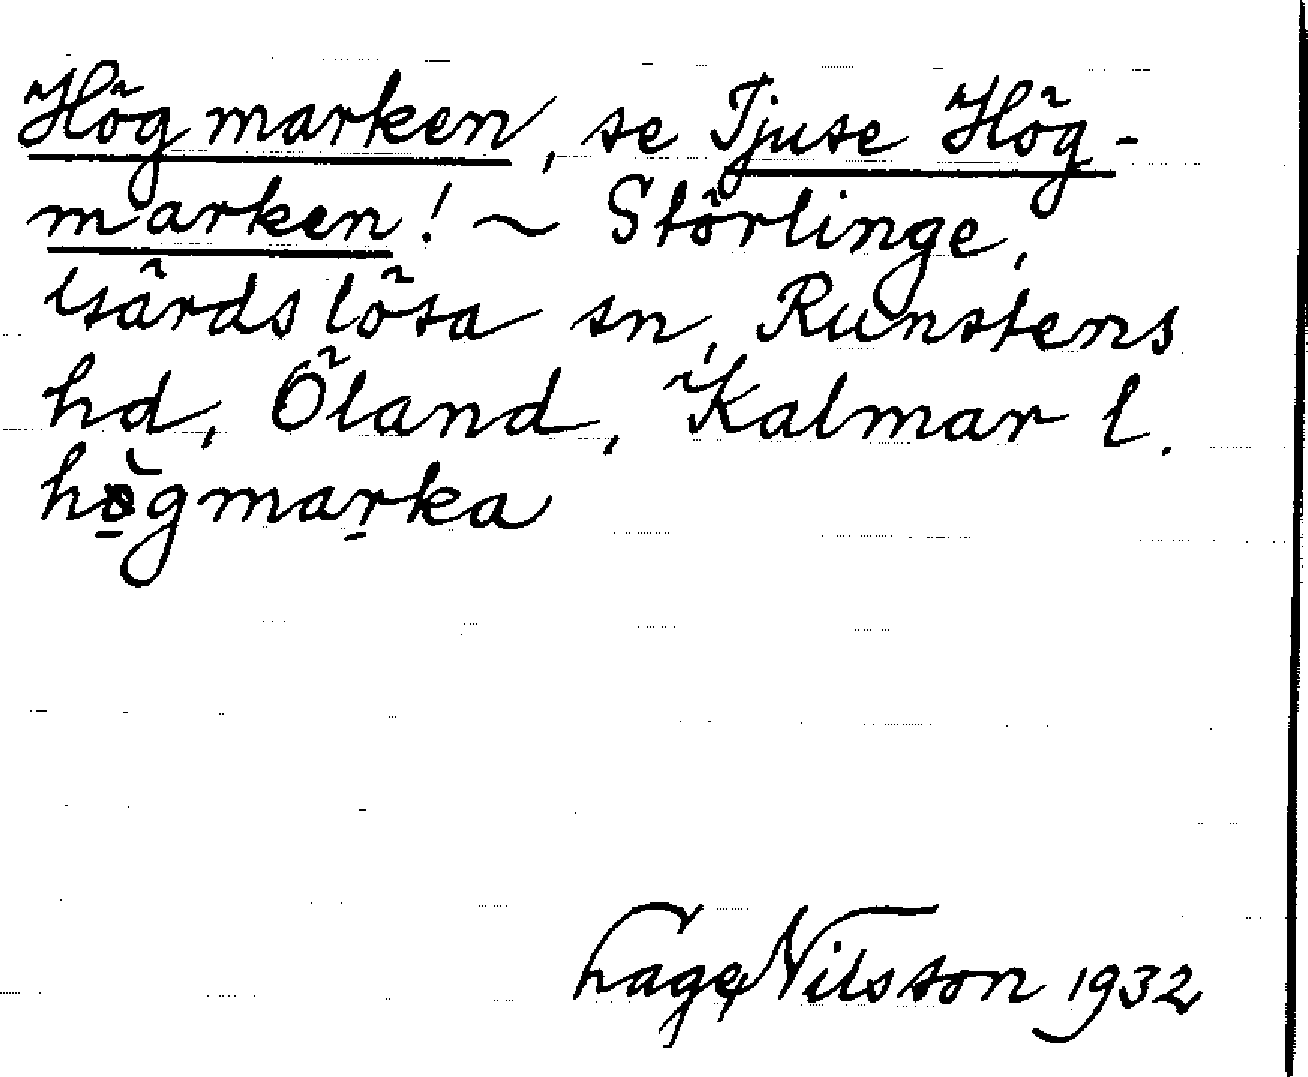 Högmarken, se Tjuse Hög-
marken! ~ Störlinge,
Gärdslösa sn, Runstens
hd, Öland, Kalmar l.
hö̀gmar̠ka
Lage Nilsson 1932